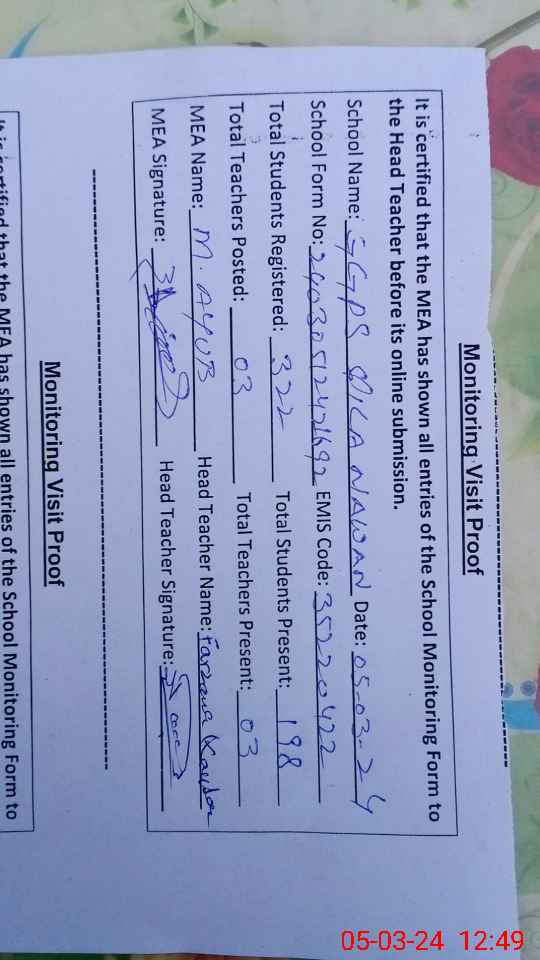 Monitoring Visit Proof
It is certified that the MEA has shown all entries of the School Monitoring Form to
the Head Teacher before its online submission.
School Name: GGPS QILA NAWAN Date: 05-03-24
School Form No: EMIS Code: 35220422
Total Students Registered: 322 Total Students Present: 198
Total Teachers Posted: 03 Total Teachers Present: 03
MEA Name: M. AYUB Head Teacher Name: Farzana Kausar
MEA Signature: Head Teacher Signature:
Monitoring Visit Proof
It is certified that the MEA has shown all entries of the School Monitoring Form to
05-03-24 12:49